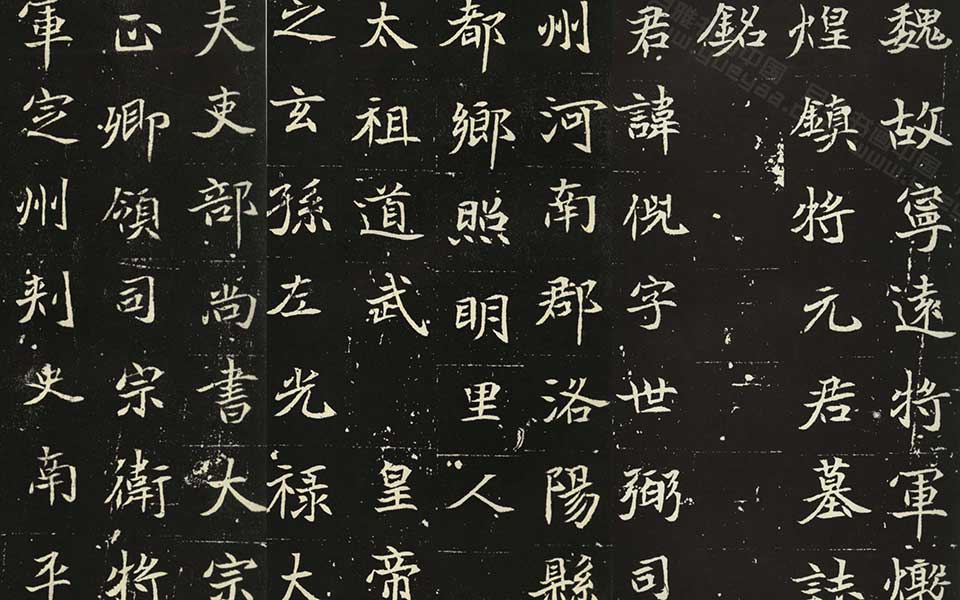 魏故寧遠將軍燉
煌鎮將元君墓誌
銘
君諱倪字世弼司
州河南郡洛陽縣
都鄉照明里人
太祖道武皇帝
之玄孫左光祿大
夫吏部尚書大宗
正卿領司宗衛將
軍定州刺史南平